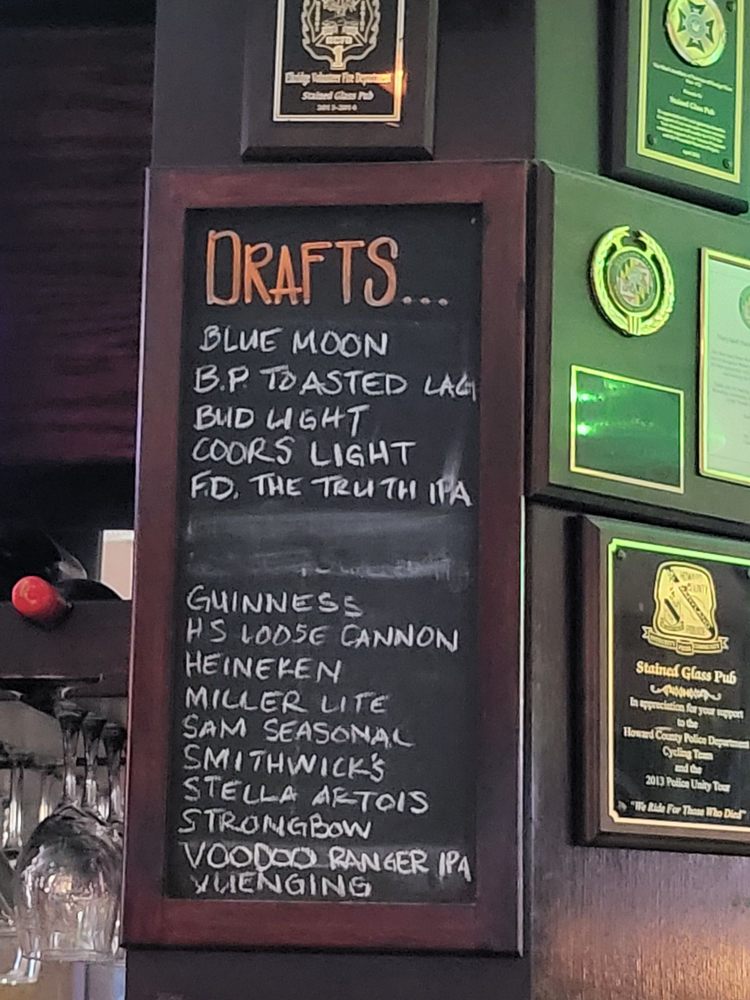 Elkridge Volunteer Fire Department
Stained Glass Pub
2013-2014
DRAFTS...
BLUE MOON
B.P. TOASTED LAG
BUD LIGHT
COORS LIGHT
F.D. THE TRUTH IPA
GUINNESS
HS LOOSE CANNON
HEINEKEN
MILLER LITE
SAM SEASONAL
SMITHWICK'S
STELLA ARTOIS
STRONGBOW
VOODOO RANGER IPA
YUENGING
Stained Glass Pub
Stained Glass Pub
In appreciation for your support
to the
Howard County Police Department
Cycling Team
and the
2013 Police Unity Tour
"We Ride For Those Who Died"